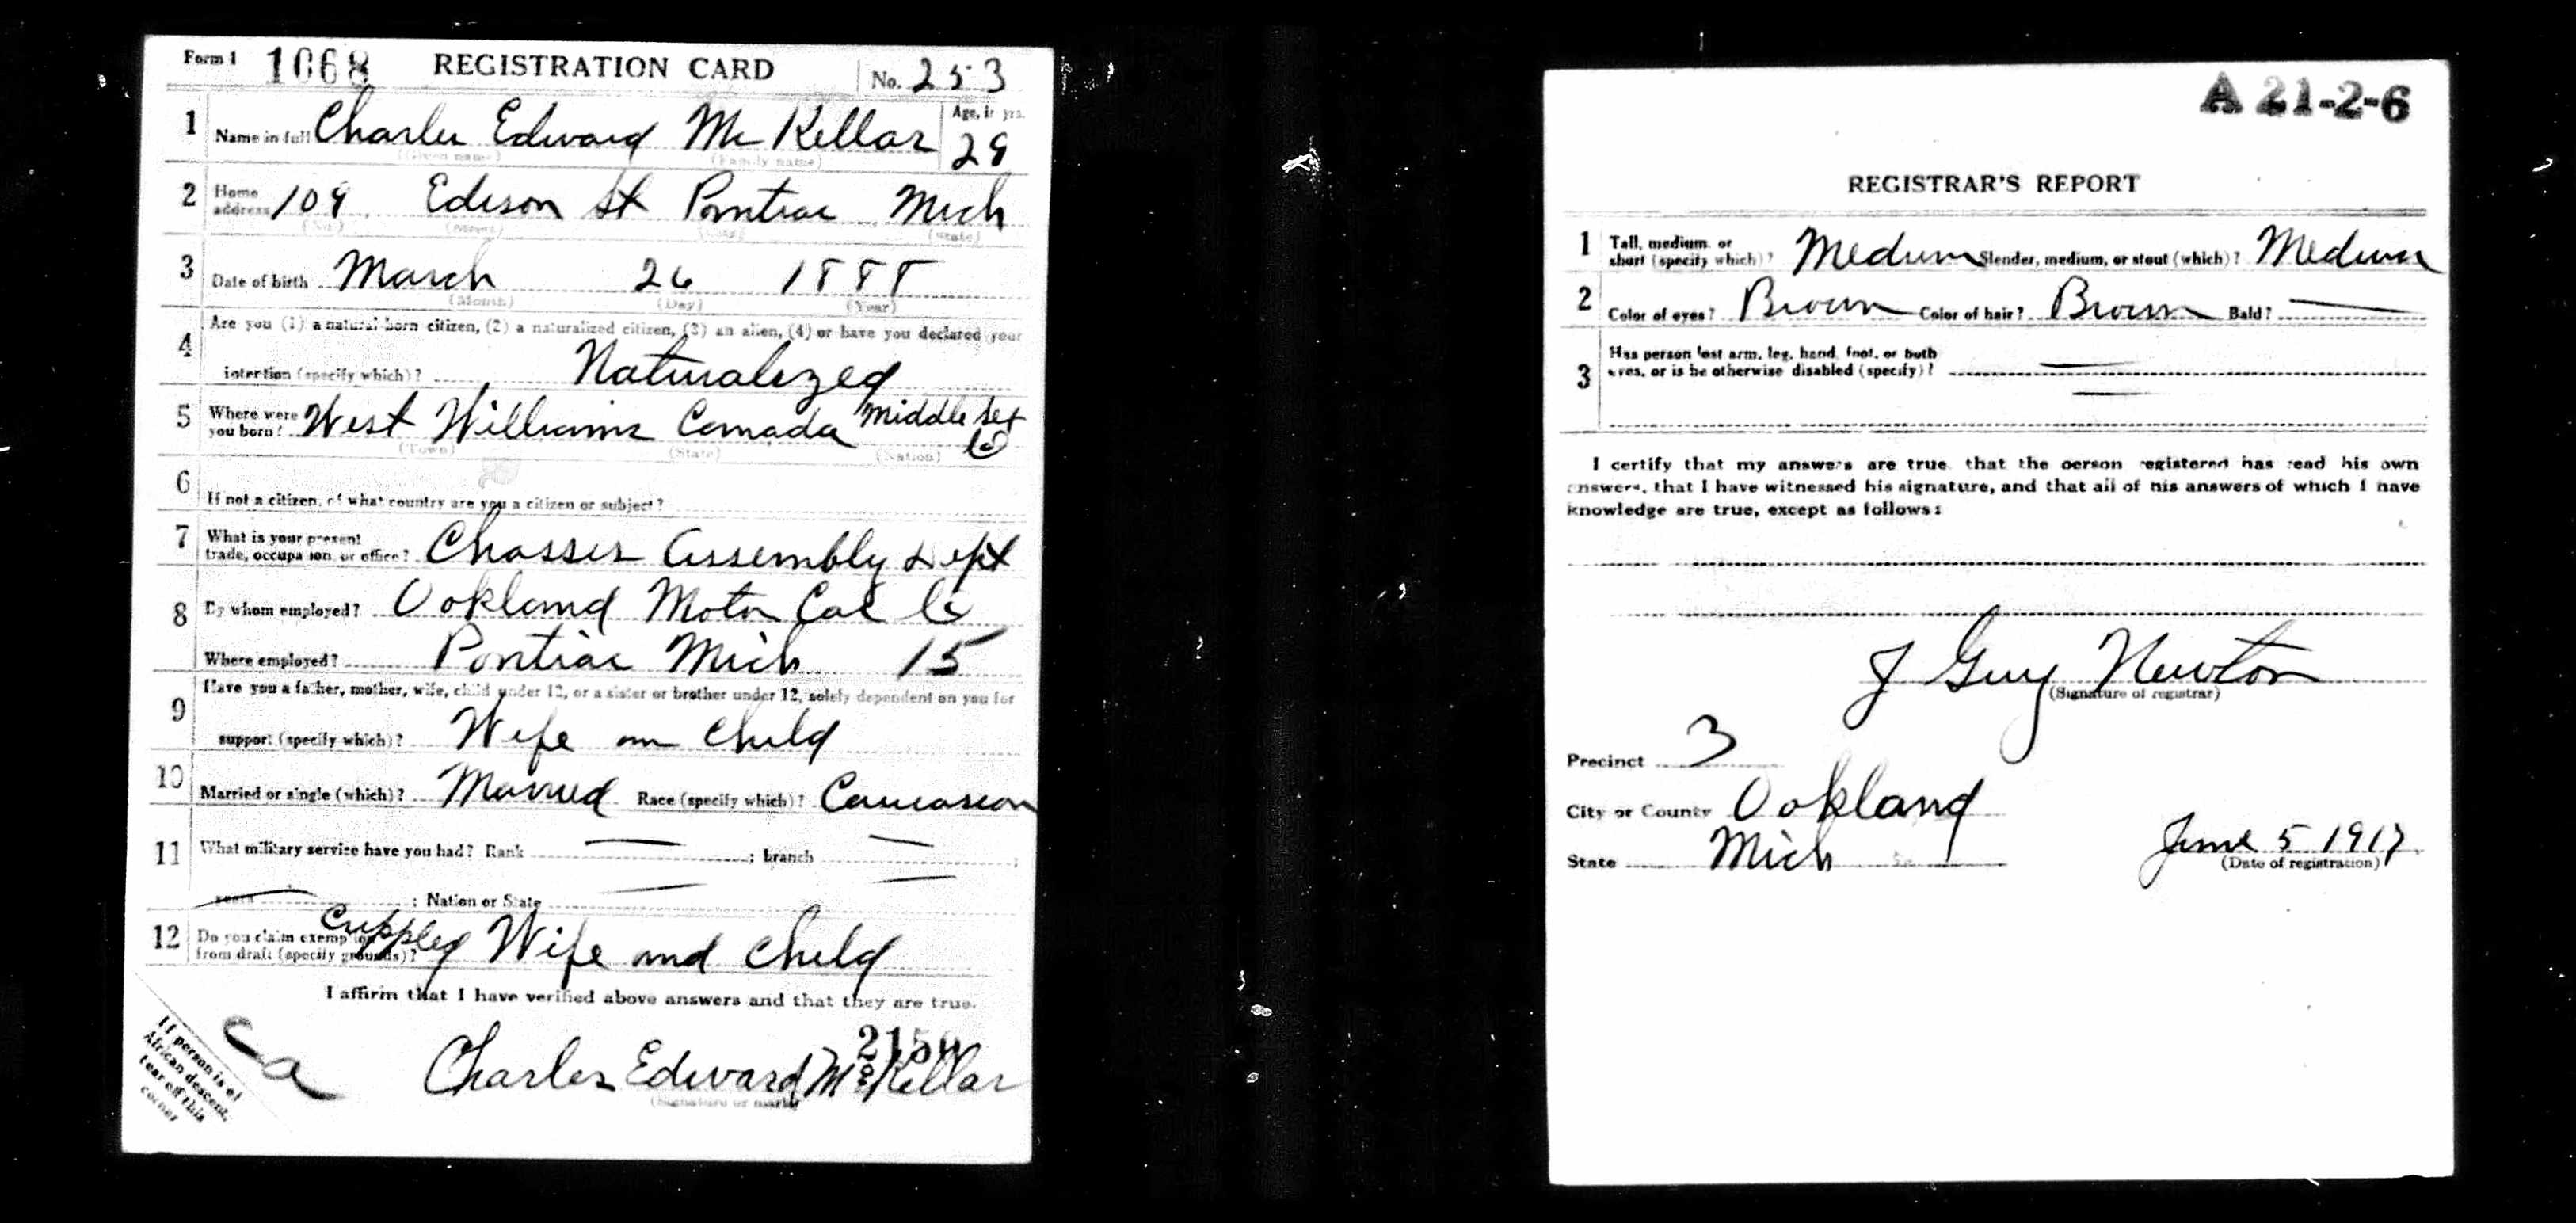 Form 1 1068 REGISTRATION CARD No. 253
1 Name in full Charles Edward Mc Kellar Age, in yrs. 29
(Given name) (Family name)
2 Home address 109 Edison St Pontiac Mich
(No.) (Street) (City) (State)
3 Date of birth March 26 1888
(Month) (Day) (Year)
4 Are you (1) a natural born citizen, (2) a naturalized citizen, (3) an alien, (4) or have you declared your
intention (specify which)? Naturalized
5 Where were you born? West Williams Canada Middlesex Co
(Town) (State) (Nation)
6 If not a citizen, of what country are you a citizen or subject?
7 What is your present trade, occupation, or office? Chasses Assembly Dept
8 By whom employed? Oakland Motor Car Co
Where employed? Pontiac Mich 15
9 Have you a father, mother, wife, child under 12, or a sister or brother under 12, solely dependent on you for
support (specify which)? Wife an Child
10 Married or single (which)? Married Race (specify which)? Caucasion
11 What military service have you had? Rank ; branch ;
years ; Nation or State
12 Do you claim exemption from draft (specify grounds)? Crippled Wife and Child
I affirm that I have verified above answers and that they are true.
Charles Edward McKellar
(Signature or mark)
If person is of
African descent,
tear off this
corner
A 21-2-6
REGISTRAR'S REPORT
1 Tall, medium, or short (specify which)? Medium Slender, medium, or stout (which)? Medium
2 Color of eyes? Brown Color of hair? Brown Bald?
3 Has person lost arm, leg, hand, foot, or both
eyes, or is he otherwise disabled (specify)?
I certify that my answers are true, that the person registered has read his own
answers, that I have witnessed his signature, and that all of his answers of which I have
knowledge are true, except as follows:
J Guy Newton
(Signature of registrar)
Precinct 3
City or County Oakland
State Mich June 5 1917
(Date of registration)